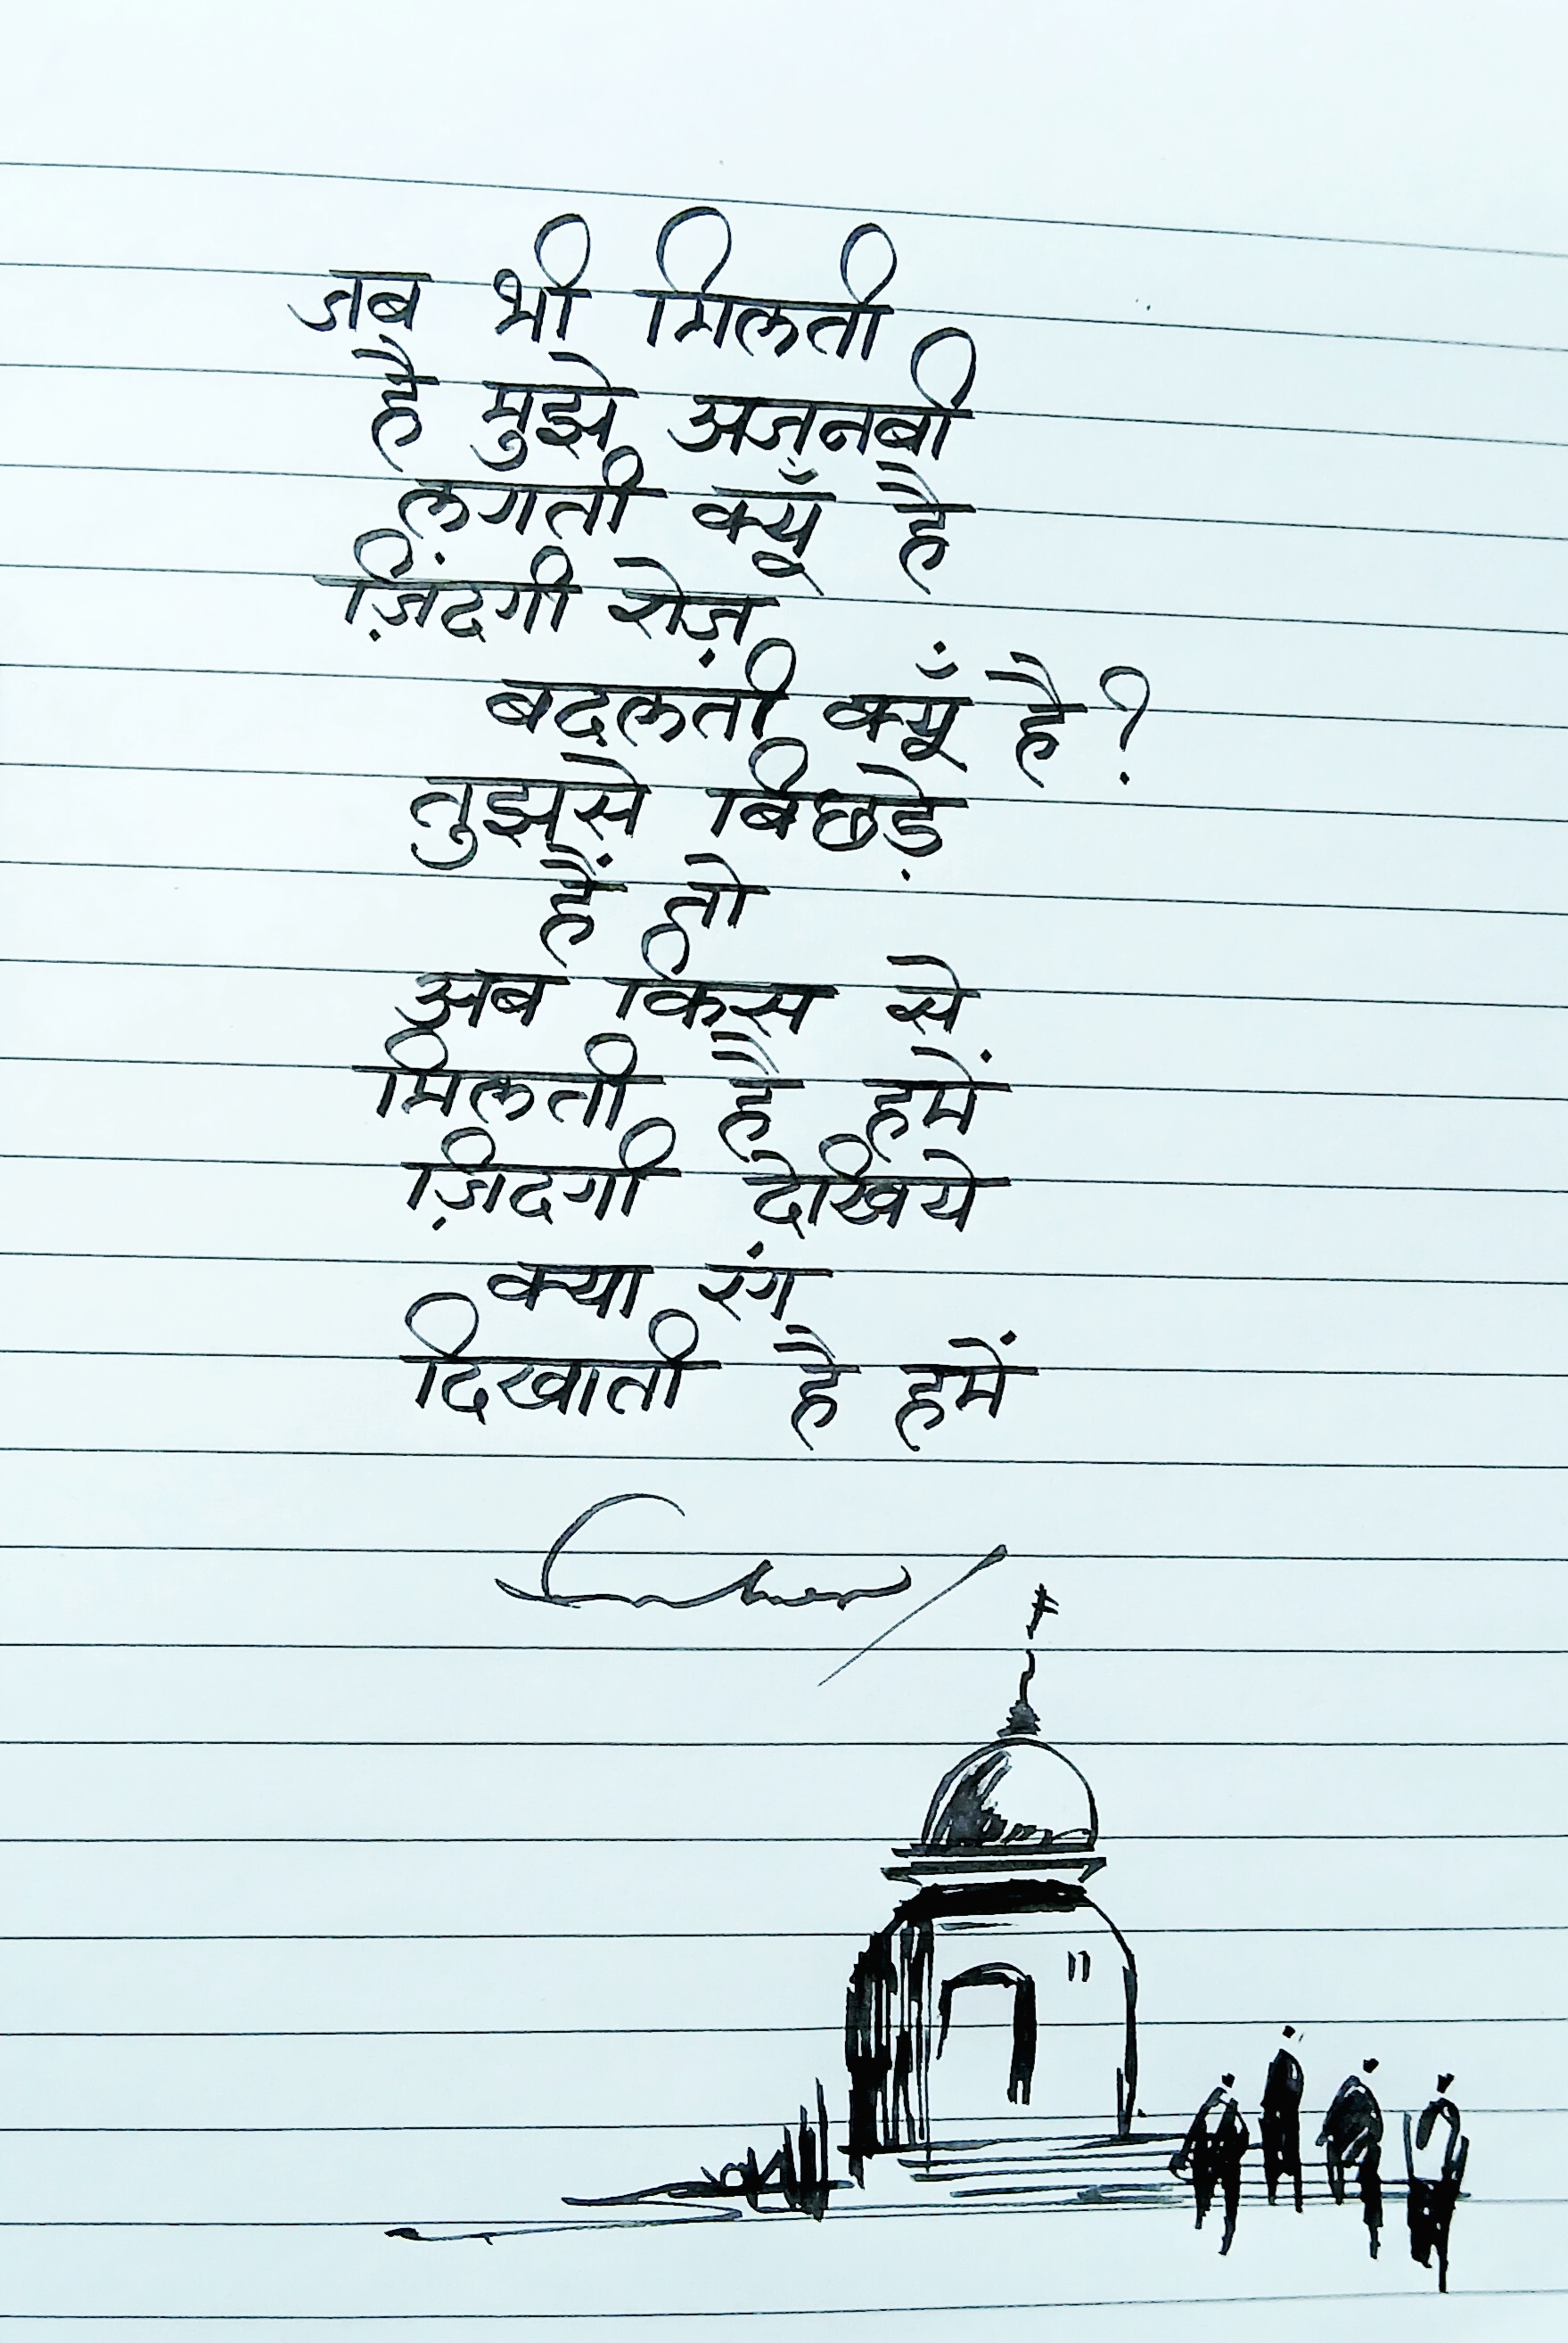 जब भी मिलती
है मुझे अजनबी
लगती क्यूँ है
ज़िंदगी रोज़
बदलती क्यूँ है?
तुझसे बिछड़े
हैं तो
अब किस से
मिलती है हमें
ज़िदगी देखिये
क्या रंग
दिखाती है हमें